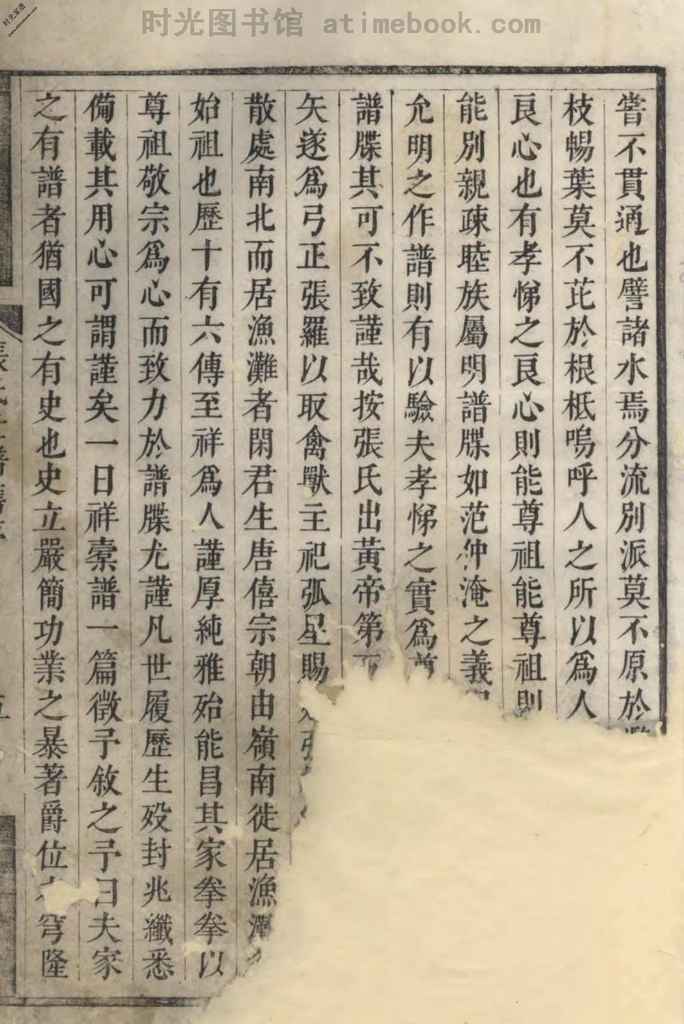 时光图书馆 atimebook.com
嘗不貫通也譬諸水焉分流別派莫不原於
枝暢葉莫不芘於根柢嗚呼人之所以爲人
良心也有孝悌之良心則能尊祖能尊祖則
能別親疎睦族屬明譜牒如范仲淹之義
允明之作譜則有以驗夫孝悌之實爲
譜牒其可不致謹哉按張氏出黃帝第
矢遂爲弓正張羅以取禽獸主祀弧星賜
散處南北而居漁灘者閑君生唐僖宗朝由嶺南徙居漁
始祖也歷十有六傳至祥爲人謹厚純雅殆能昌其家拳拳以
尊祖敬宗爲心而致力於譜牒尤謹凡世履歷生歿封兆纖悉
備載其用心可謂謹矣一日祥橐譜一篇徵予敘之予曰夫家
之有譜者猶國之有史也史立嚴簡功業之暴著爵位 穹隆